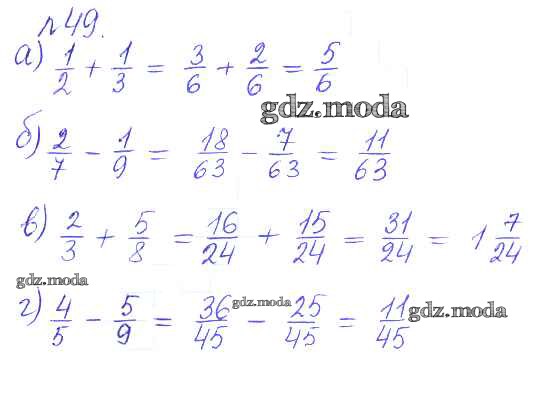 №49.
а) 1/2 + 1/3 = 3/6 + 2/6 = 5/6
gdz.moda
б) 2/7 - 1/9 = 18/63 - 7/63 = 11/63
в) 2/3 + 5/8 = 16/24 + 15/24 = 31/24 = 1 7/24
gdz.moda
г) 4/5 - 5/9 = 36/45 - 25/45 = 11/45
gdz.moda
gdz.moda